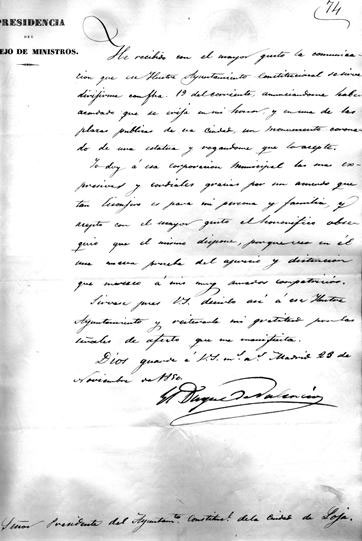 74
PRESIDENCIA
DEL
EJO DE MINISTROS.
He recibido con el mayor gusto la comunica-
cion que ese Ilustre Ayuntamiento Constitucional se sirve
dirijirme con fha 19 del corriente, anunciandome haber
acordado que se erija en mi honor, y en una de las
plazas publicas de esa Ciudad, un monumento corona-
do de una estatua y rogandome que lo acepte.
Yo doy á esa corporacion Municipal las mas ex-
presivas y cordiales gracias por un acuerdo que
tan lisonjero es para mi persona y familia, y
acepto con el mayor gusto el honorífico obse-
quio que el mismo dispone, porque veo en él
una nueva prueba del aprecio y distincion
que merezco á mis muy amados compatricios.
Sirvase pues V.S. decirlo así á ese Ilustre
Ayuntamiento y reiterarle mi gratitud por las
señales de afecto que me manifiesta.
Dios guarde á V.S. ms. as. Madrid 23 de
Noviembre de 1850.
El Duque de Valencia
Señor Presidente del Ayuntamto. Constitucl. de la Ciudad de Loja.